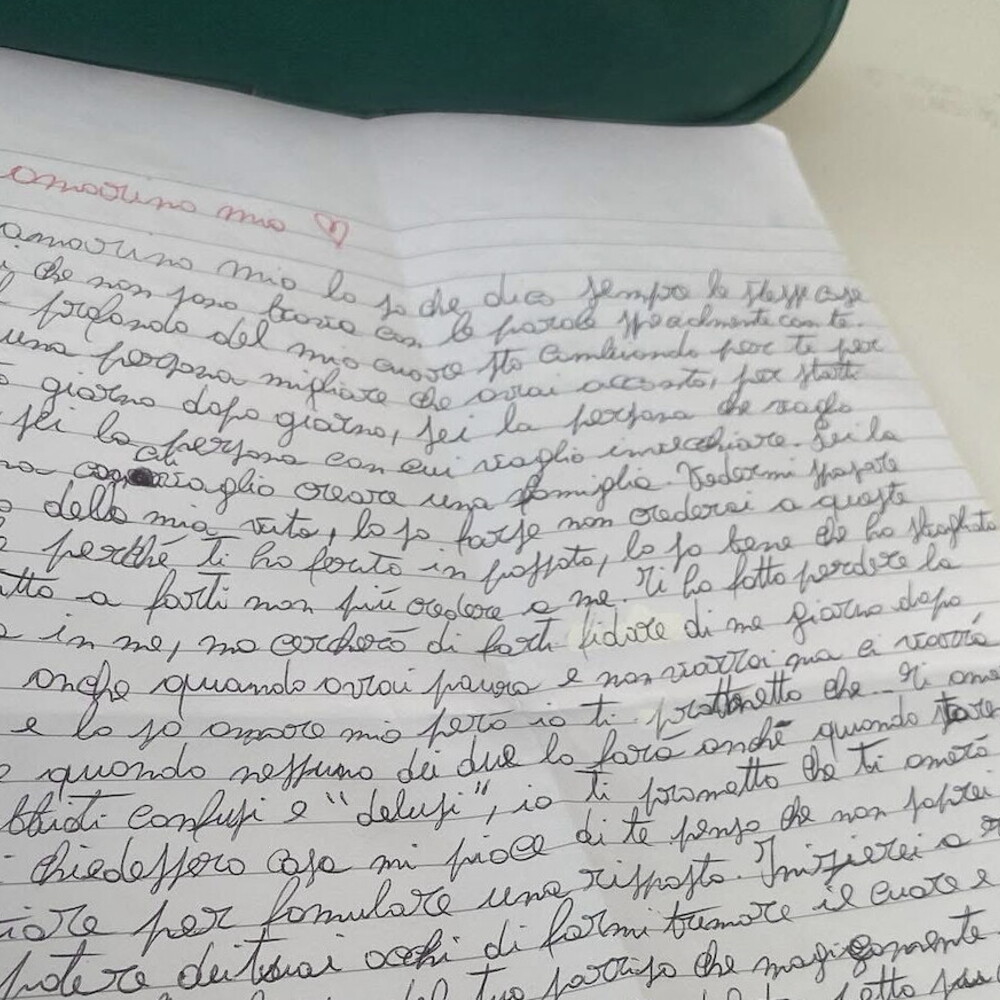 amorino mio ♡
amorino mio lo so che dico sempre le stesse cose
che non sono brava con le parole specialmente con te.
profondo del mio cuore sto cambiando per te per
una persona migliore che avrai accanto, per starti
giorno dopo giorno, sei la persona che voglio
sei la persona con cui voglio invecchiare. Sei la
con cui voglio creare una famiglia. Vedermi sposare
della mia vita, lo so forse non crederai a queste
perché ti ho ferito in passato, lo so bene che ho sbagliato
a farti non più credere a me. Ti ho fatto perdere la
in me, ma cercherò di farti fidare di me giorno dopo
anche quando avrai paura e non vorrai ma ci vorrà
e lo so amore mio però io ti prometto che.. Ti
quando nessuno dei due lo farà anche quando
confusi e "delusi", io ti prometto che ti amerò
chiedessero cosa mi piace di te penso che non saprei
per fomulare una risposta. Inizierei a
potere dei tuoi occhi di farmi tremare il cuore e
del tuo sorriso che magicamente